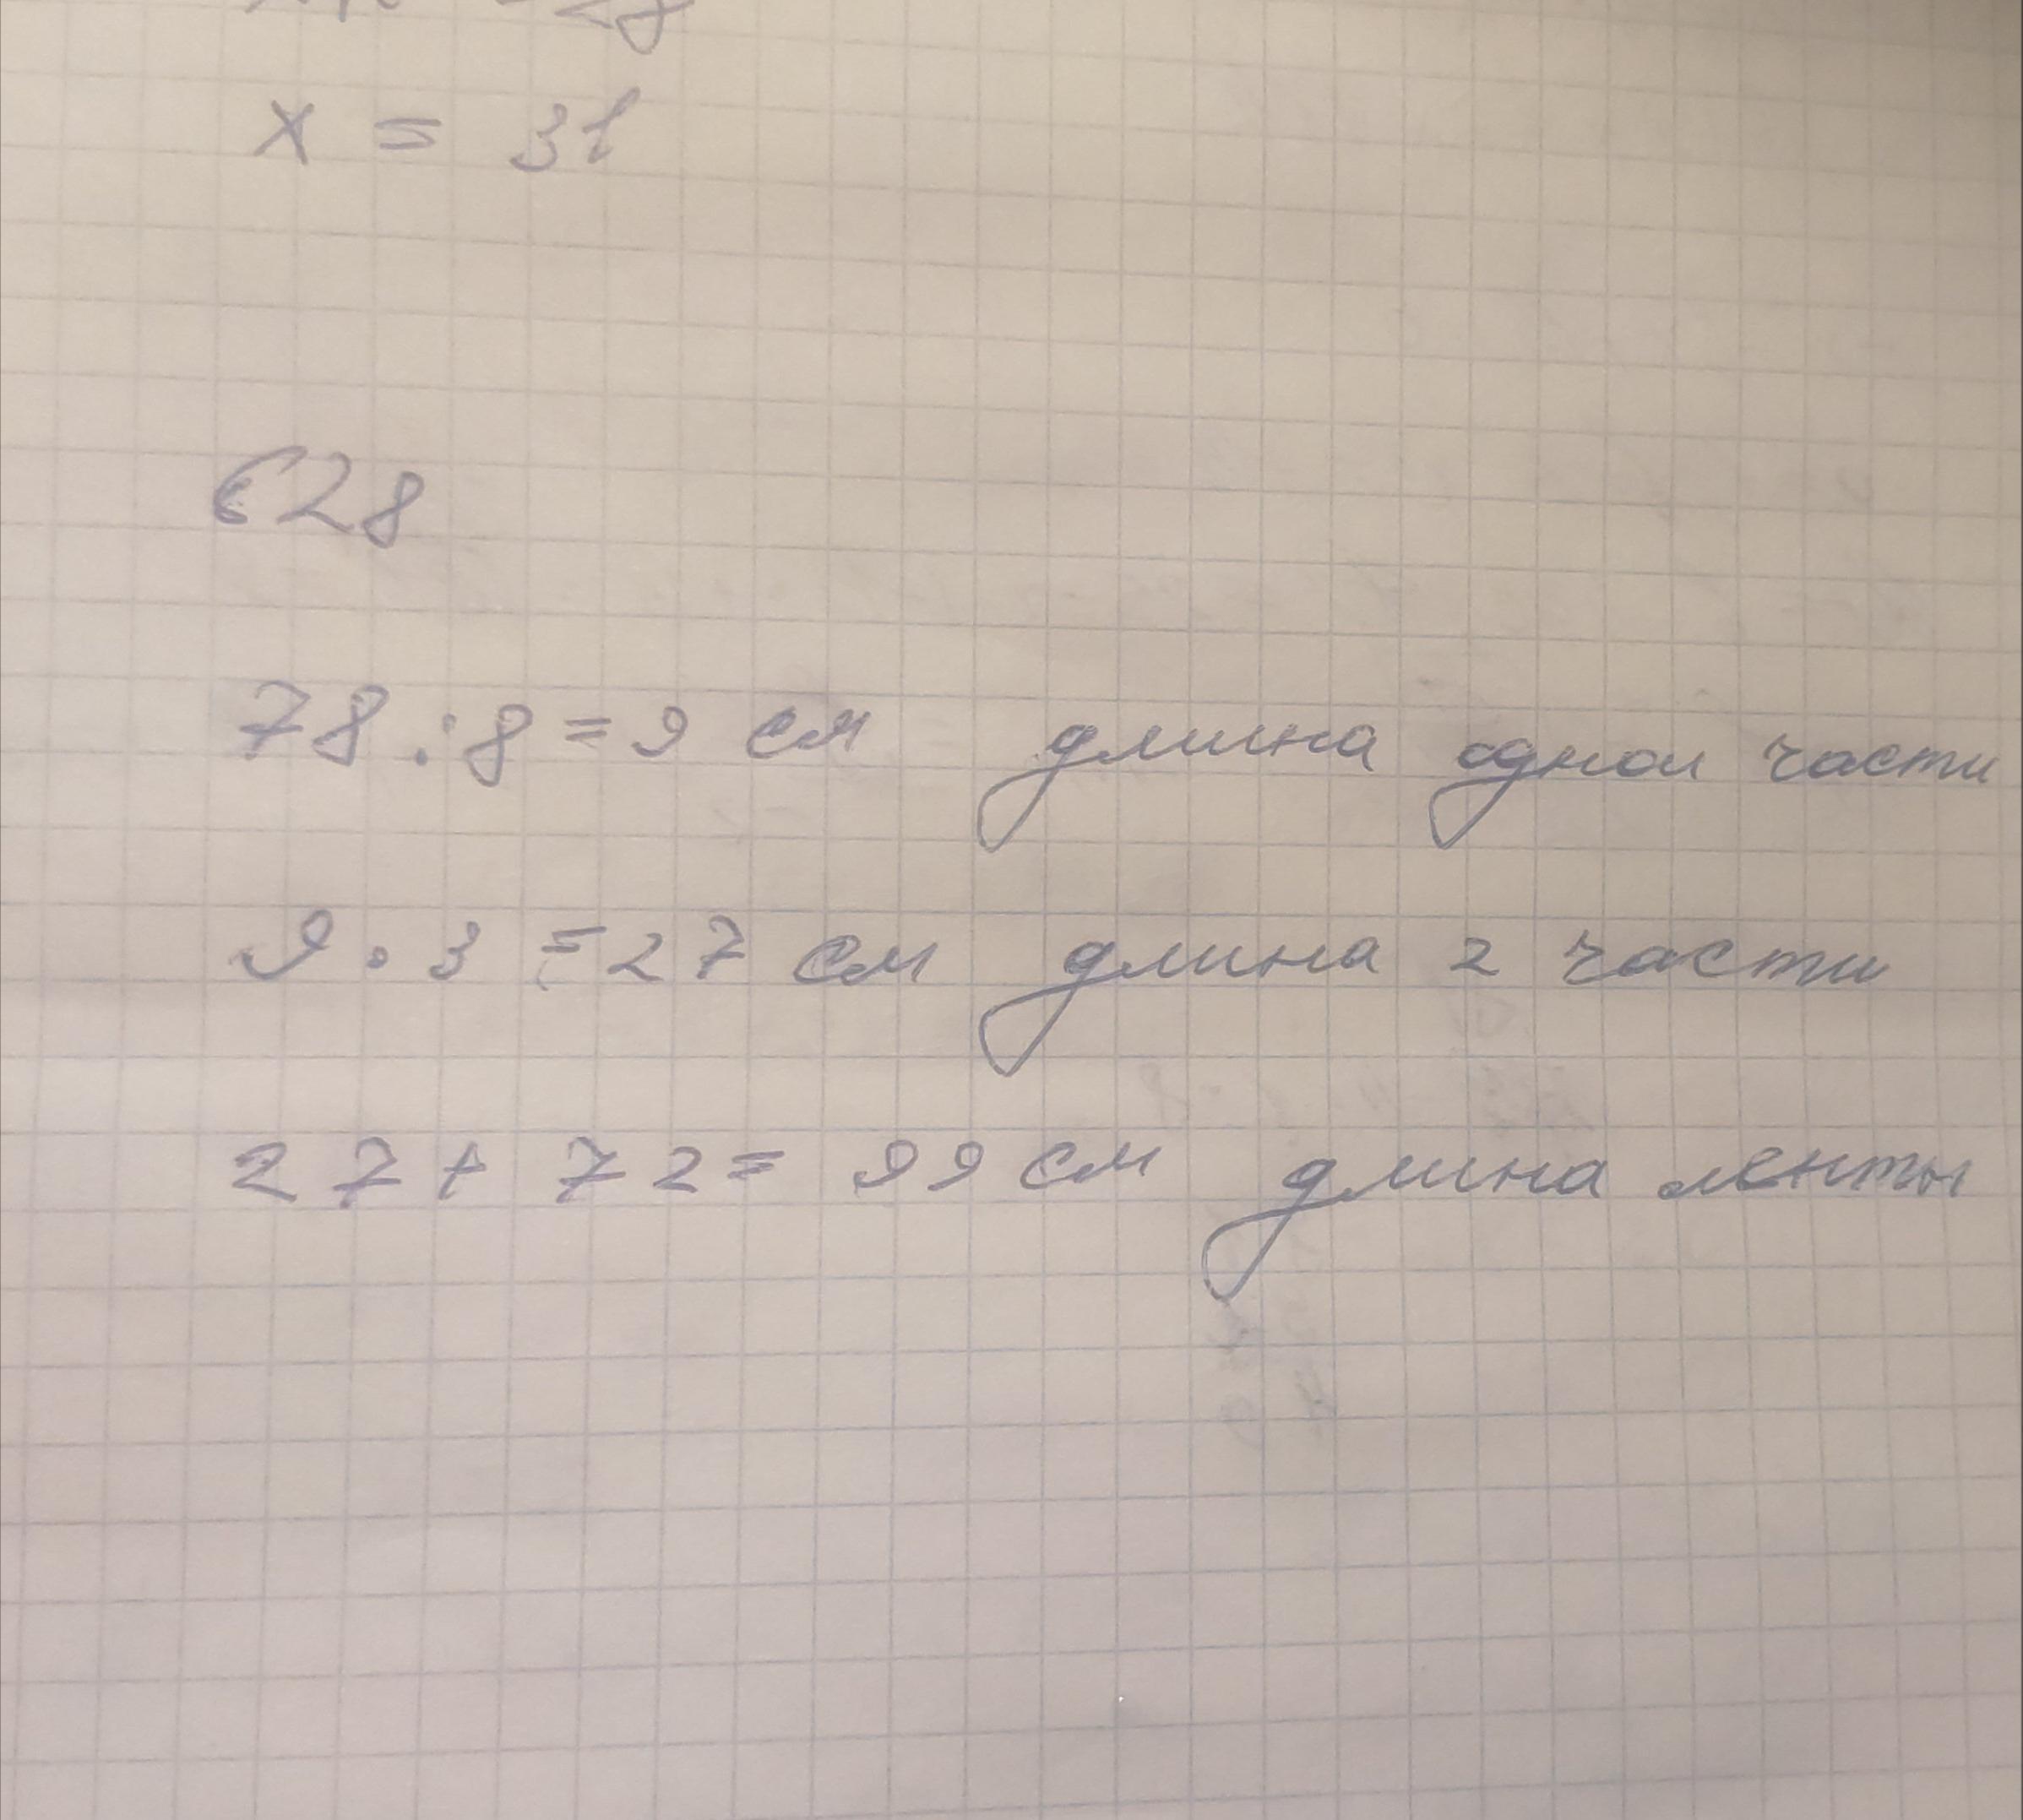 28
x = 31
628
78 : 8 = 9 см длина однои части
9 · 3 = 27 см длина 2 части
27 + 72 = 99 см длина ленты